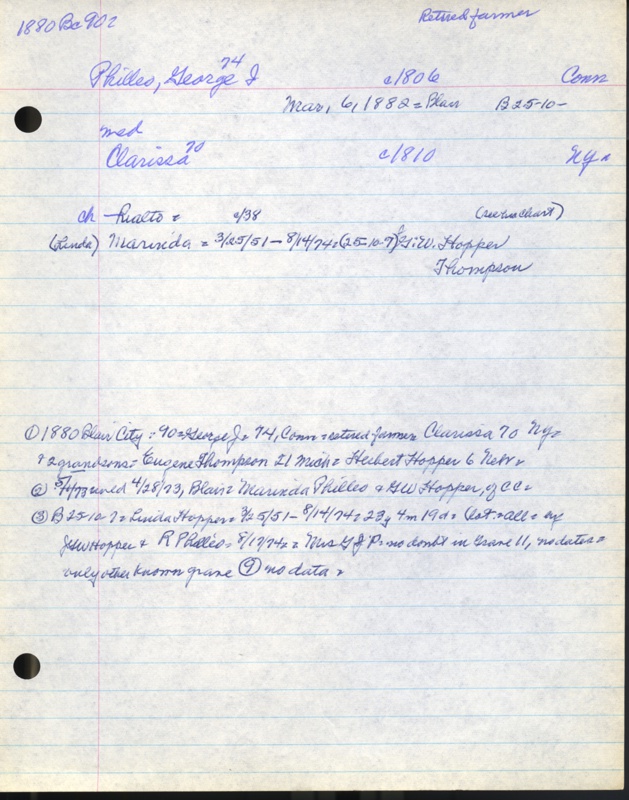 1880 Bc 90=
Retired farmer
74
Philleo, George J c/1806 Conn
Mar, 6, 1882 = Blair B 25-10-
med
70
Clarissa c/1810 Ny=
ch Rialto = c/38 (see his chart)
(Linda) Marinda = 3/25/51 - 8/14/74 = (25-10-7) G.W. Hopper
Thompson
① 1880 Blair City = 90 = George J = 74, Conn = retired farmer Clarissa 70 Ny=
+ 2 grandsons = Eugene Thompson 21 Mich = Herbert Hopper 6 Nebr=
② med 4/28/73, Blair = Marinda Philleo + GW Hopper, of CC=
③ B 25-10-7 = Linda Hopper = 3/25/51 - 8/14/74 = 23y 4m 19d = Lot = all =
GW Hopper + R Philleo = 8/17/74 = Mrs G J P = no doubt in Grave 11, no dates =
only other known grave ⑨ no data =